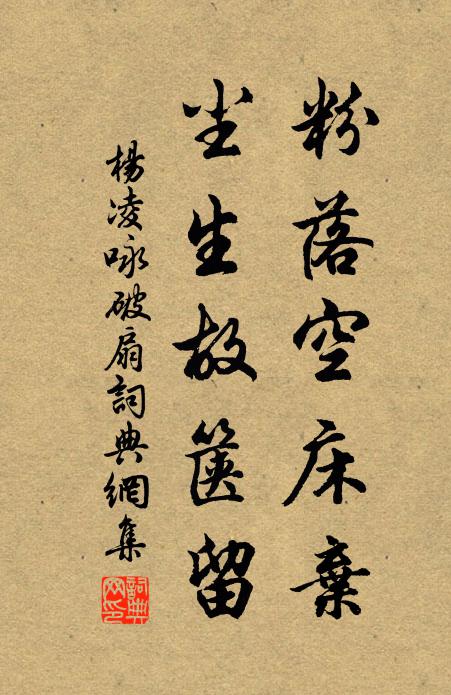 粉落空床棄
尘生故篋留
楊凌咏破扇詞典網集
詞典
网印